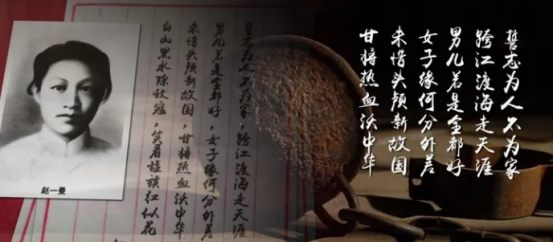 誓志为人不为家
跨江渡海走天涯
男儿若是全都好
女子缘何分外差
未惜头颅新故国
甘将热血沃中华
誓志为人不为家，跨江渡海走天涯
男儿若是全都好，女子缘何分外差
未惜头颅新故国，甘将热血沃中华
白山黑水除敌寇，笑看旌旗红似花
赵一曼